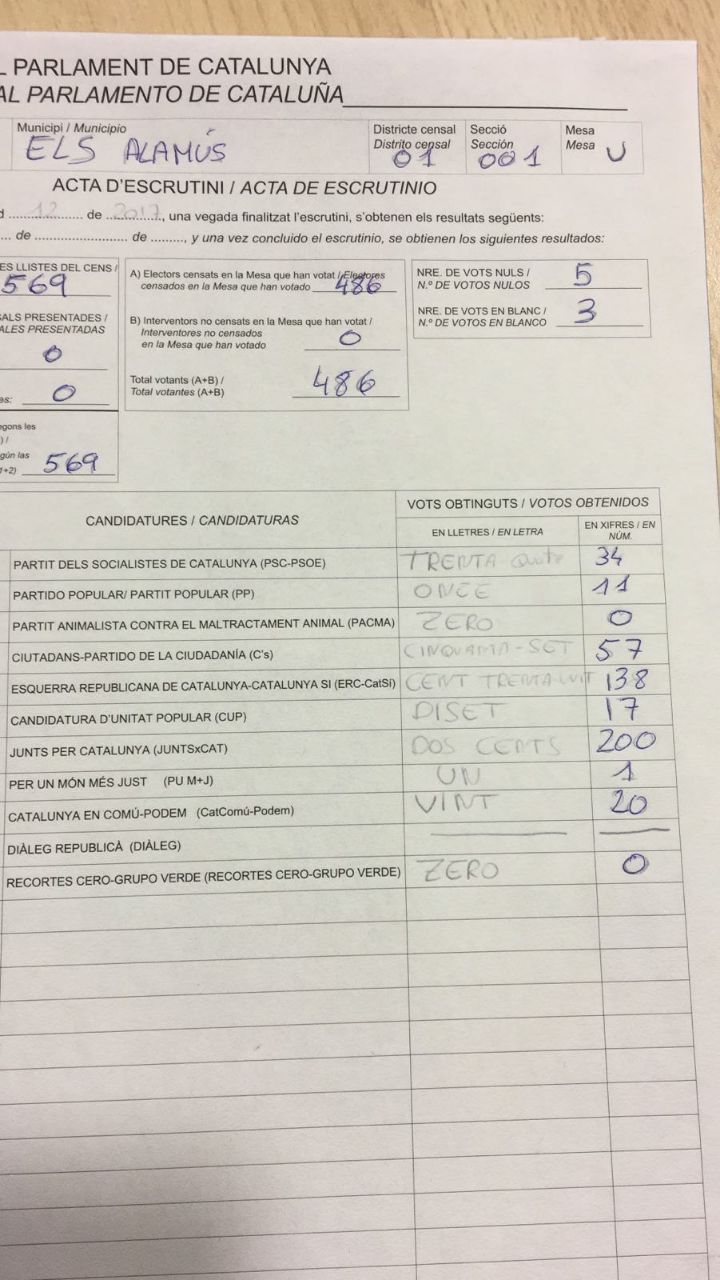 L PARLAMENT DE CATALUNYA
AL PARLAMENTO DE CATALUÑA
Municipi / Municipio
ELS ALAMÚS
Districte censal
Distrito censal
01
Secció
Sección
001
Mesa
Mesa U
ACTA D'ESCRUTINI / ACTA DE ESCRUTINIO
d 12 de 2017, una vegada finalitzat l'escrutini, s'obtenen els resultats següents:
... de ........................ de ........., y una vez concluido el escrutinio, se obtienen los siguientes resultados:
ES LLISTES DEL CENS /
569
ALS PRESENTADES /
ALES PRESENTADAS
0
es: 0
egons les
) /
gún las
1+2) 569
A) Electors censats en la Mesa que han votat / Electores
censados en la Mesa que han votado 486
B) Interventors no censats en la Mesa que han votat /
Interventores no censados
en la Mesa que han votado 0
Total votants (A+B) /
Total votantes (A+B) 486
NRE. DE VOTS NULS /
N.º DE VOTOS NULOS 5
NRE. DE VOTS EN BLANC /
N.º DE VOTOS EN BLANCO 3
CANDIDATURES / CANDIDATURAS
VOTS OBTINGUTS / VOTOS OBTENIDOS
EN LLETRES / EN LETRA
EN XIFRES / EN
NÚM.
PARTIT DELS SOCIALISTES DE CATALUNYA (PSC-PSOE) TRENTA 34
PARTIDO POPULAR/ PARTIT POPULAR (PP) ONCE 11
PARTIT ANIMALISTA CONTRA EL MALTRACTAMENT ANIMAL (PACMA) ZERO 0
CIUTADANS-PARTIDO DE LA CIUDADANÍA (C's) CINQUANTA-SET 57
ESQUERRA REPUBLICANA DE CATALUNYA-CATALUNYA SI (ERC-CatSí) CENT TRENTA-VUIT 138
CANDIDATURA D'UNITAT POPULAR (CUP) DISET 17
JUNTS PER CATALUNYA (JUNTSxCAT) DOS CENTS 200
PER UN MÓN MÉS JUST (PU M+J) UN 1
CATALUNYA EN COMÚ-PODEM (CatComú-Podem) VINT 20
DIÀLEG REPUBLICÀ (DIÀLEG)
RECORTES CERO-GRUPO VERDE (RECORTES CERO-GRUPO VERDE) ZERO 0